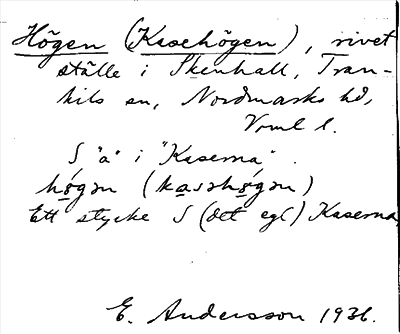 Högen (Kasehögen), rivet
ställe i Skenhall, Tran-
kils sn, Nordmarks hd,
Vrml l.
S "a" i "Kaserna".
högɘn (kasɘhögɘn)
Ett stycke S (det egl) Kaserna,
E. Andersson 1936.